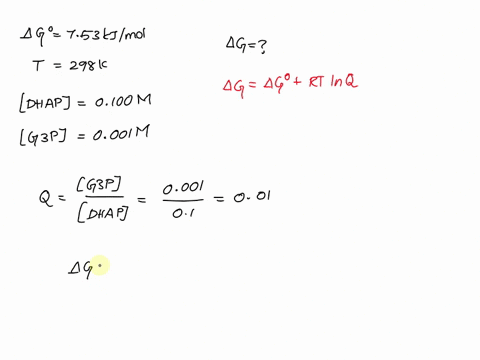 ΔG° = 7.53 kJ/mol
ΔG = ?
T = 298 K
ΔG = ΔG° + RT ln Q
[DHAP] = 0.100 M
[G3P] = 0.001 M
Q = [G3P] / [DHAP] = 0.001 / 0.1 = 0.01
ΔG